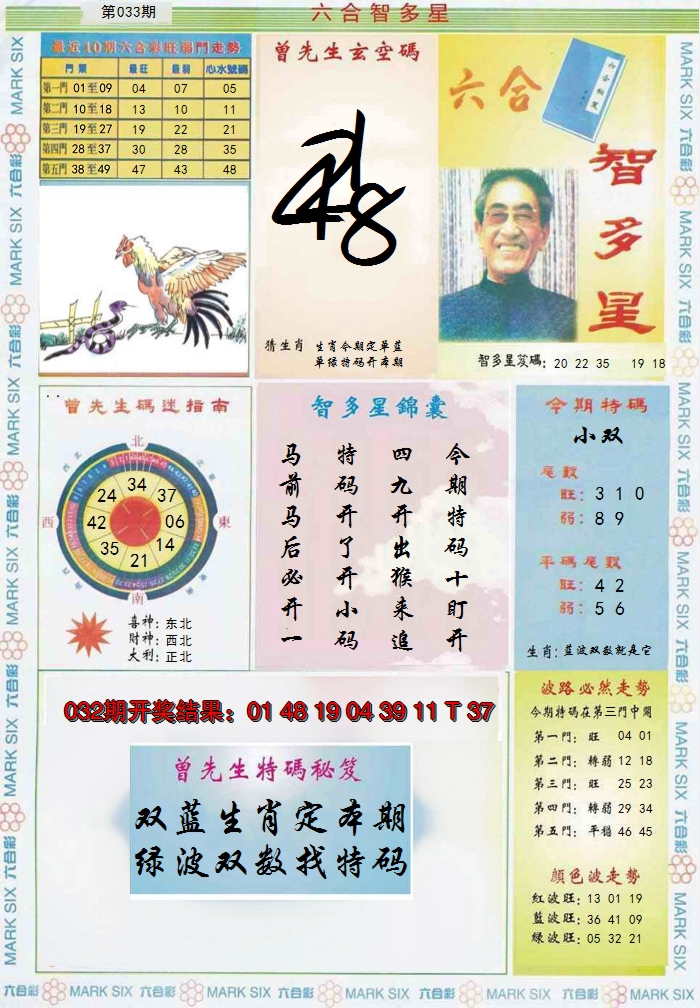 第033期
六合智多星
最近10期六合彩旺弱門走勢
門類 最旺 最弱 心水號碼
第一門 01至09 04 07 05
第二門 10至18 13 10 11
第三門 19至27 19 22 21
第四門 28至37 30 28 35
第五門 38至49 47 43 48
曾先生玄空碼
猜生肖
生肖今期定单蓝
单绿特码开本期
六合
智多星
智多星笈碼: 20 22 35 19 18
曾先生碼迷指南
北
西
東
南
34
37
06
14
21
35
42
24
喜神: 东北
财神: 西北
大利: 正北
智多星錦囊
今期特码十盯开
四九开出猴来追
特码开了开小码
马前马后必开一
今期特碼
小双
尾數
旺: 3 1 0
弱: 8 9
平碼尾數
旺: 4 2
弱: 5 6
生肖: 蓝波双数就是它
032期开奖结果: 01 48 19 04 39 11 T 37
曾先生特碼秘笈
双蓝生肖定本期
绿波双数找特码
波路必然走勢
今期特碼在第三門中開
第一門: 旺 04 01
第二門: 轉弱 12 18
第三門: 旺 25 23
第四門: 轉弱 29 34
第五門: 平穩 46 45
顏色波走勢
紅波旺: 13 01 19
藍波旺: 36 41 09
綠波旺: 05 32 21
MARK SIX 六合彩